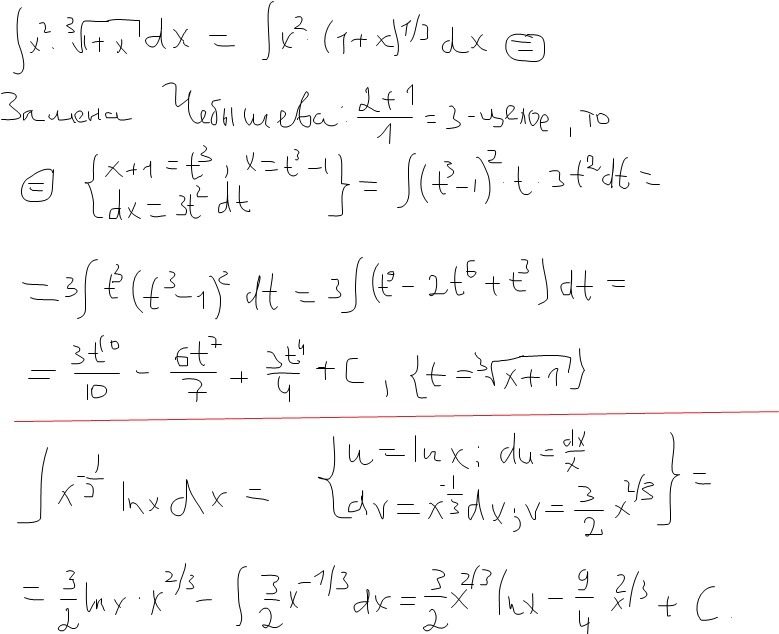 ∫x²·∛(1+x) dx = ∫x²·(1+x)^{1/3} dx ⊜
Замена Чебышева: (2+1)/1 = 3 - целое, то
⊜ {x+1 = t³, x = t³-1; dx = 3t² dt} = ∫(t³-1)²·t·3t² dt =
= 3∫t³(t³-1)² dt = 3∫(t⁹ - 2t⁶ + t³) dt =
= 3t¹⁰/10 - 6t⁷/7 + 3t⁴/4 + C, {t = ∛(x+1)}
∫x^{-1/3} ln x dx = {u = ln x; du = dx/x; dv = x^{-1/3} dx; v = 3/2 x^{2/3}} =
= 3/2 ln x · x^{2/3} - ∫ 3/2 x^{-1/3} dx = 3/2 x^{2/3} ln x - 9/4 x^{2/3} + C.